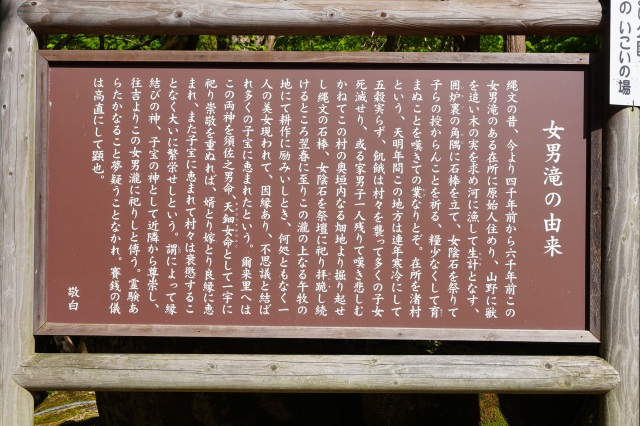 のいこいの場
女男滝の由来
縄文の昔、今より四千年前から六千年前この
女男滝のある在所に原始人住めり、山野に獣
を追い木の実を求め河に漁して生計となす、
囲炉裏の角隅に石棒を立て、女陰石を祭りて
子らの授からんことを祈る、糧少なくして育
まぬことを嘆きての業なりとぞ、在所を渚村
という、天明年間この地方は連年寒冷にして
五穀実らず、飢餓は村々を襲って多くの子女
死滅せり、或る家男子一人残りて嘆き悲しむ
かねてこの村の奥垣内なる畑地より掘り起せ
し縄文の石棒、女陰石を祭壇に祀り拝跪し続
けるところ翌春に至りこの瀧の上なる午牧の
地にて耕作に励みいしとき、何処ともなく一
人の美女現われて、因縁あり、不思議と結ば
れ多くの子宝に恵まれたという。爾来里へは
この両神を須佐之男命、天鈿女命として一宇に
祀り崇敬を重ねれば、婿とり嫁とり良縁に恵
まれ、また子宝に恵まれて村々は衰憊するこ
となく大いに繁栄せしという。謂によって縁
結びの神、子宝の神として近隣から尊崇し、
往古よりこの女男瀧に祀りしと傳う。霊験あ
らたかなること夢疑うことなかれ。賽銭の儀
は高直にして顕也。
敬白